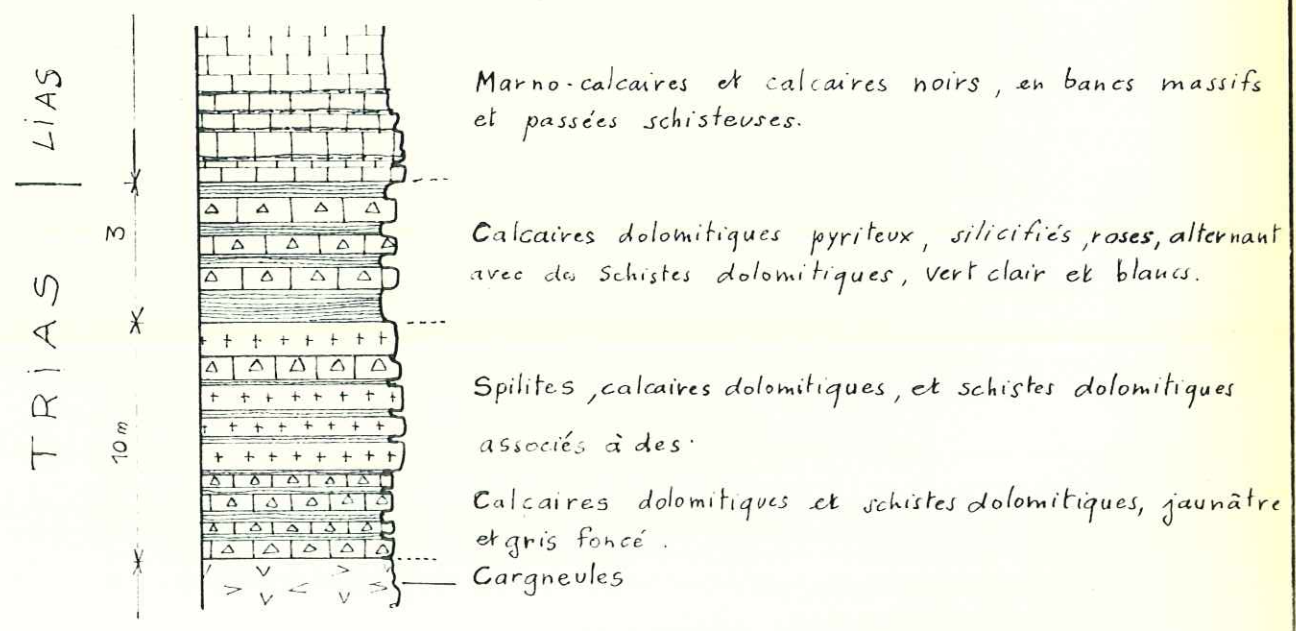 LIAS
TRIAS
3
10 m
Marno-calcaires et calcaires noirs, en bancs massifs
et passées schisteuses.
Calcaires dolomitiques pyriteux, silicifiés, roses, alternant
avec des Schistes dolomitiques, vert clair et blancs.
Spilites, calcaires dolomitiques, et schistes dolomitiques
associés à des
Calcaires dolomitiques et schistes dolomitiques, jaunâtre
et gris foncé.
Cargneules